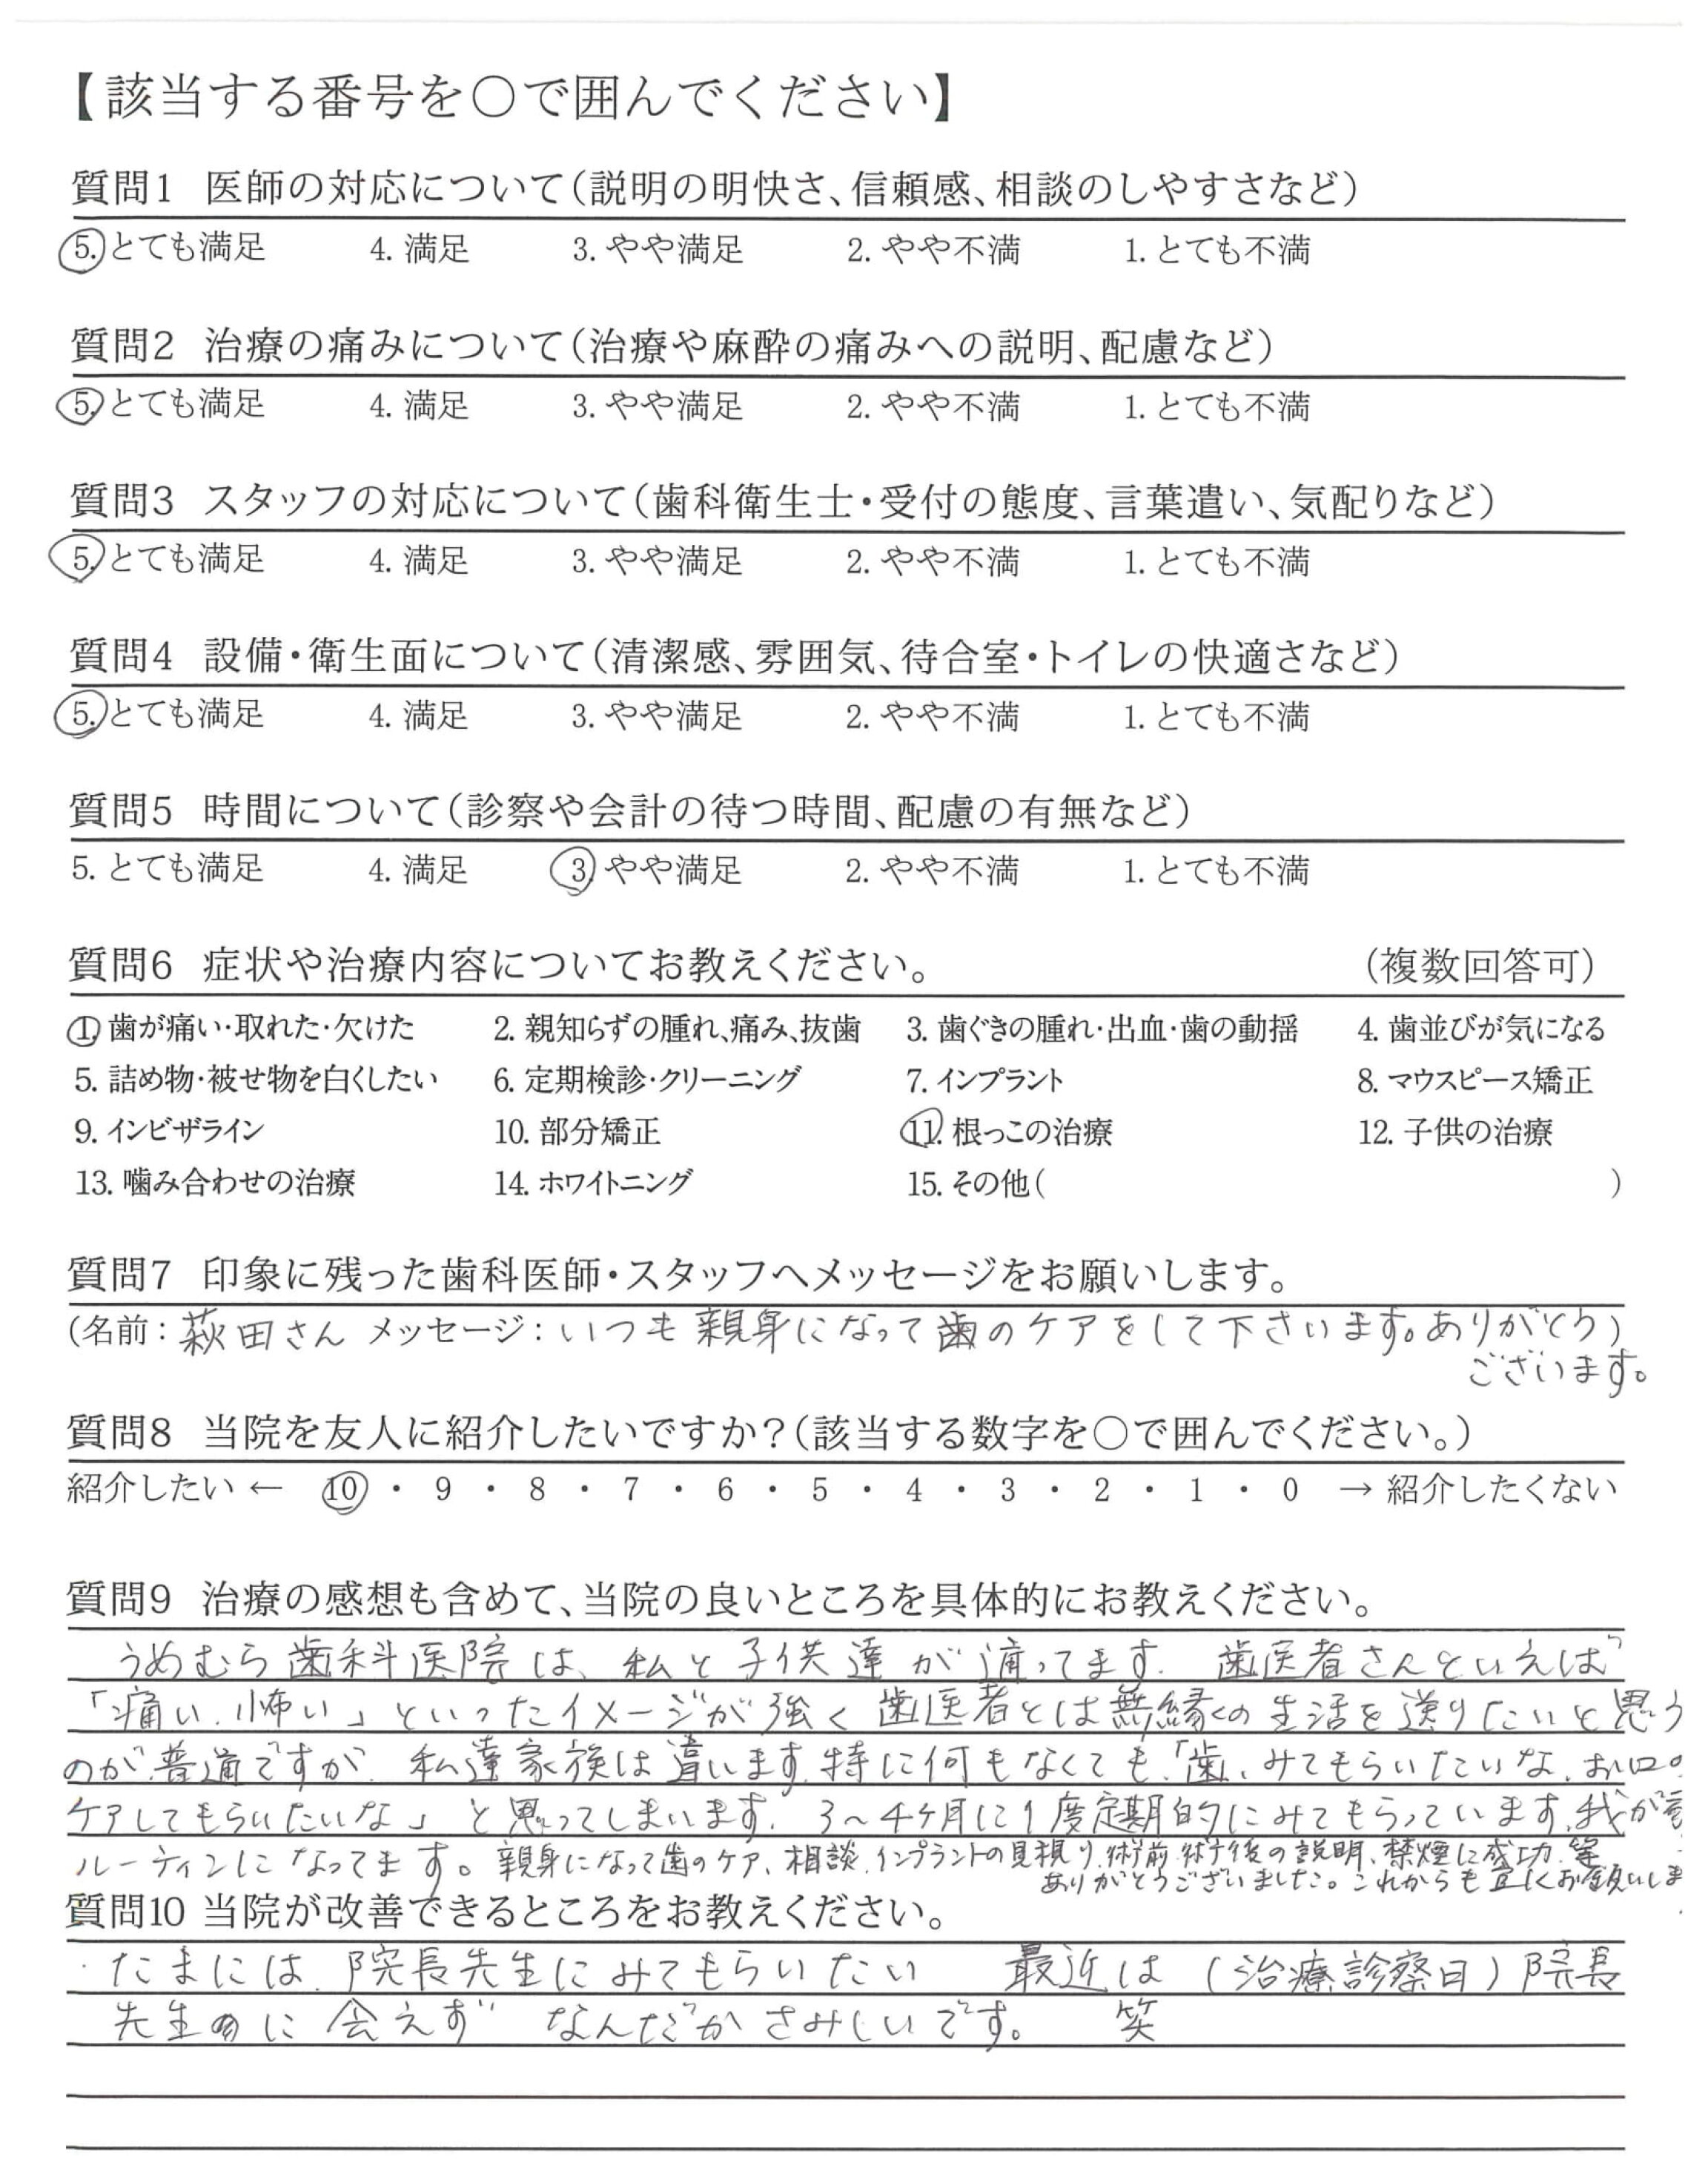 【該当する番号を○で囲んでください】
質問1 医師の対応について(説明の明快さ、信頼感、相談のしやすさなど)
5. とても満足 4. 満足 3. やや満足 2. やや不満 1. とても不満
質問2 治療の痛みについて(治療や麻酔の痛みへの説明、配慮など)
5. とても満足 4. 満足 3. やや満足 2. やや不満 1. とても不満
質問3 スタッフの対応について(歯科衛生士・受付の態度、言葉遣い、気配りなど)
5. とても満足 4. 満足 3. やや満足 2. やや不満 1. とても不満
質問4 設備・衛生面について(清潔感、雰囲気、待合室・トイレの快適さなど)
5. とても満足 4. 満足 3. やや満足 2. やや不満 1. とても不満
質問5 時間について(診察や会計の待つ時間、配慮の有無など)
5. とても満足 4. 満足 3. やや満足 2. やや不満 1. とても不満
質問6 症状や治療内容についてお教えください。 (複数回答可)
1. 歯が痛い・取れた・欠けた 2. 親知らずの腫れ、痛み、抜歯 3. 歯ぐきの腫れ・出血・歯の動揺 4. 歯並びが気になる
5. 詰め物・被せ物を白くしたい 6. 定期検診・クリーニング 7. インプラント 8. マウスピース矯正
9. インビザライン 10. 部分矯正 11. 根っこの治療 12. 子供の治療
13. 噛み合わせの治療 14. ホワイトニング 15. その他( )
質問7 印象に残った歯科医師・スタッフへメッセージをお願いします。
(名前：萩田さん メッセージ：いつも親身になって歯のケアをして下さいます。ありがとう)
ございます。
質問8 当院を友人に紹介したいですか？(該当する数字を○で囲んでください。)
紹介したい ← 10 ・ 9 ・ 8 ・ 7 ・ 6 ・ 5 ・ 4 ・ 3 ・ 2 ・ 1 ・ 0 → 紹介したくない
質問9 治療の感想も含めて、当院の良いところを具体的にお教えください。
うめむら歯科医院は、私と子供達が通ってます. 歯医者さんといえば
「痛い、怖い」といったイメージが強く歯医者とは無縁の生活を送りたいと思う
のが普通ですが、私達家族は違います.特に何もなくても、「歯、みてもらいたいな、お口の
ケアしてもらいたいな」と思ってしまいます. 3〜4ヶ月に1度定期的にみてもらっています.我が
ルーティンになってます。親身になって歯のケア、相談、インプラントの見積り、術前術後の説明、禁煙に成功、等
ありがとうございました。これからも宜しくお願いしま
質問10 当院が改善できるところをお教えください。
・たまには、院長先生にみてもらいたい 最近は(治療診察日)院長
先生に会えず なんだかさみしいです。 笑